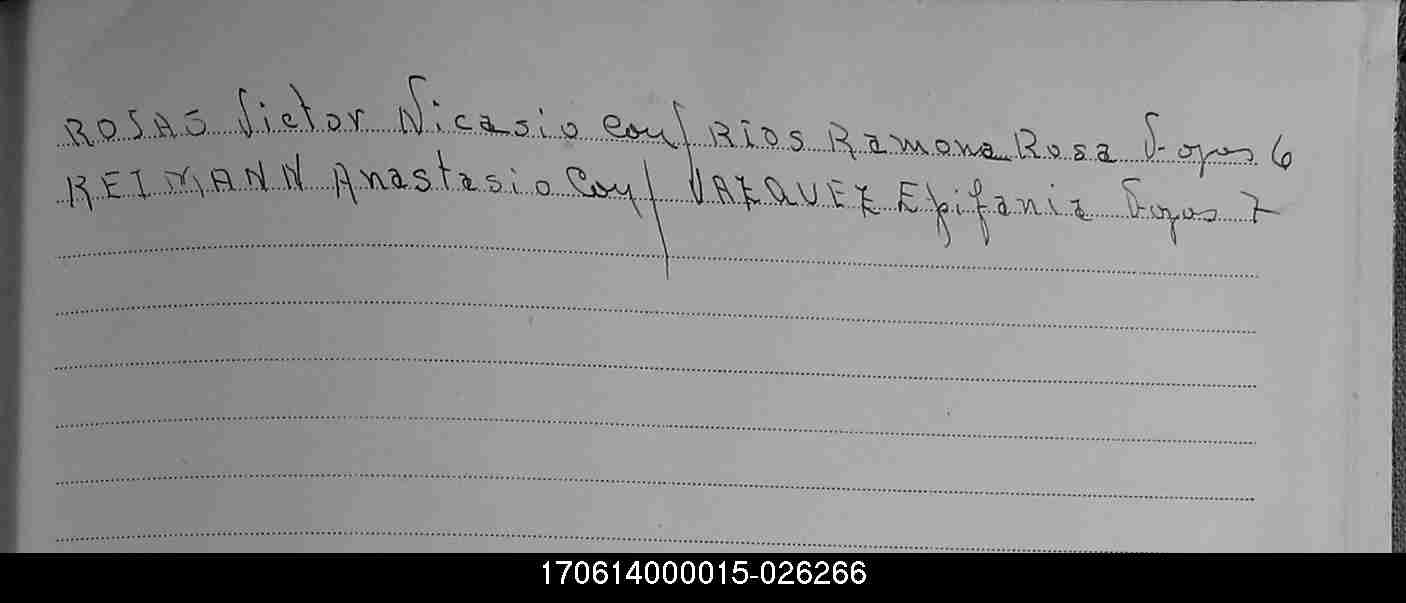 ROSAS Victor Nicasio con/ RIOS Ramona Rosa Fojas 6
REIMANN Anastasio Con/ VAZQUEZ Epifania Fojas 7
170614000015-026266